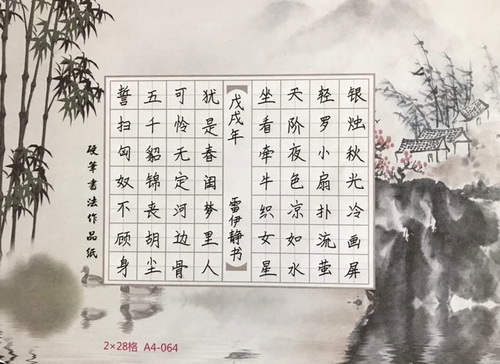 银烛秋光冷画屏
轻罗小扇扑流萤
天阶夜色凉如水
坐看牵牛织女星
誓扫匈奴不顾身
五千貂锦丧胡尘
可怜无定河边骨
犹是春闺梦里人
【戊戌年 雷伊静书】
硬笔書法作品紙
2×28格 A4-064